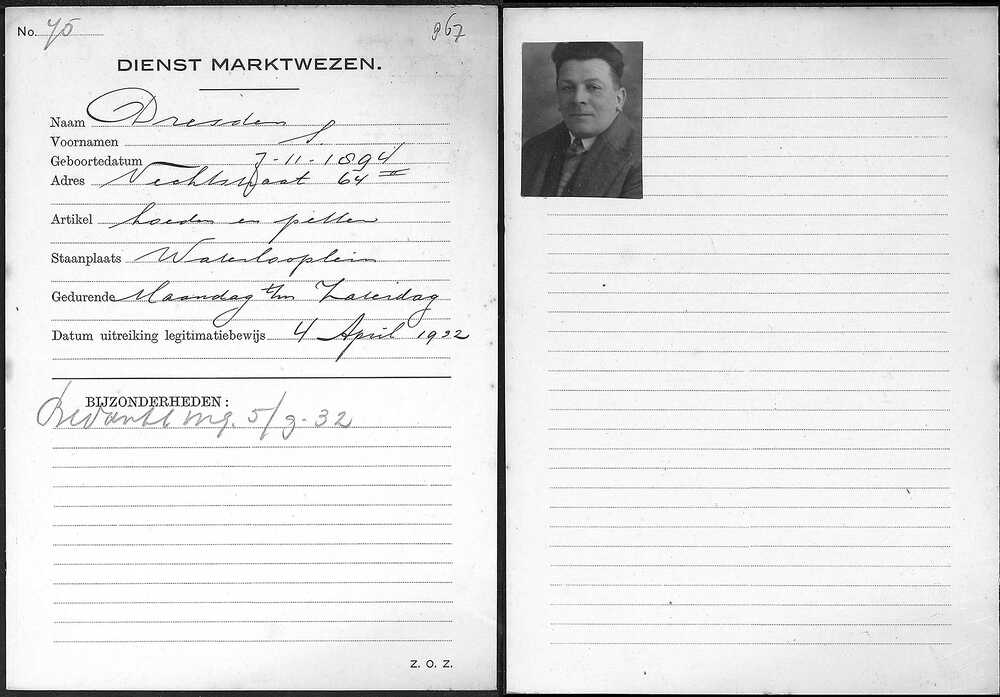 No. 75
967
DIENST MARKTWEZEN.
Naam Dresden
Voornamen S.
Geboortedatum 7-11-1894
Adres Vechtstraat 64 II
Artikel hoeden en petten
Staanplaats Waterlooplein
Gedurende Maandag t/m Zaterdag
Datum uitreiking legitimatiebewijs 4 April 1922
BIJZONDERHEDEN:
m.i.g. 5/3-32
Z. O. Z.